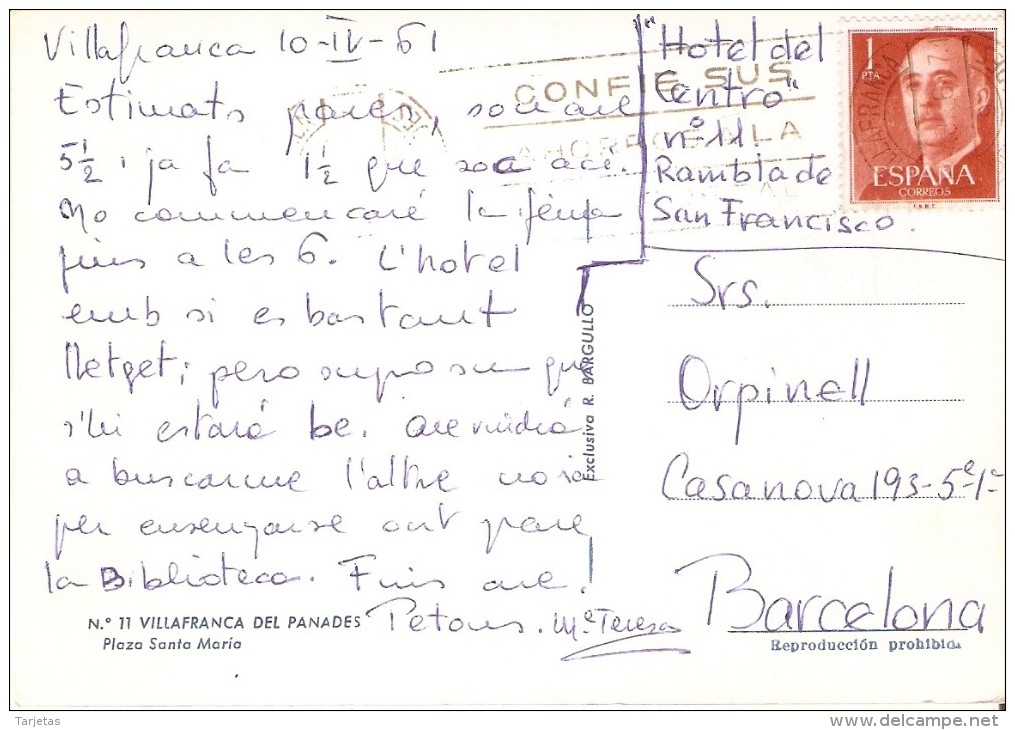 Villafranca 10-IV-61
Estimats pares, son are
5½, ja fa 1½ que soc ací.
No commencaré la feina
fins a les 6. L'hotel
emb si es bastant
lletget; pero suposem que
s'hi estará be. Are vindrá
a buscarme l'altre noia
per ensenyarse ont para
la Biblioteca. Fins are!
Petons. Mª Teresa
"Hotel del
Centro"
nº 11
Rambla de
San Francisco.
CONFIE SUS
AHORROS A LA
VILLAFRANCA
1
PTA
ESPAÑA
CORREOS
Srs.
Orpinell
Casanova 193-5º-1ª
Barcelona
Exclusiva R. BARGULLO
N.º 11 VILLAFRANCA DEL PANADES
Plaza Santa María
Reproducción prohibida
Tarjetas
delcampe.net